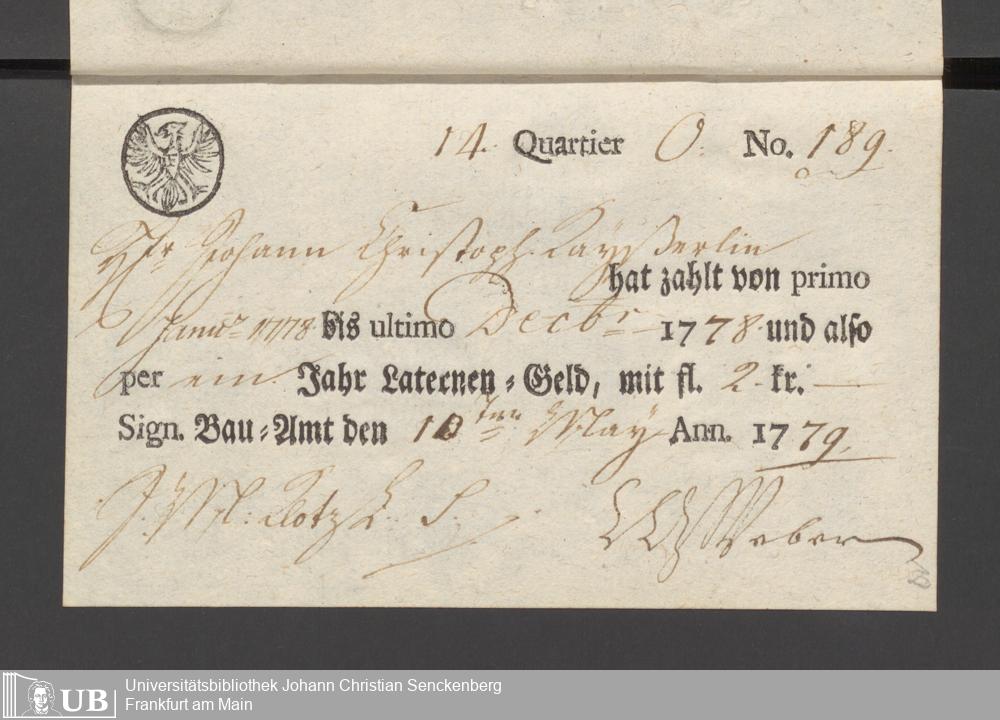 14. Quartier O. No. 189.
Hr Johann Christoph Kayßerlin
hat zahlt von primo
Janu: 1778 bis ultimo Decbr 1778 und also
per ein Jahr Laternen-Geld, mit fl. 2. kr. —
Sign. Bau-Amt den 10ten May Ann. 1779.
J. M. Weber
UB
Universitätsbibliothek Johann Christian Senckenberg
Frankfurt am Main